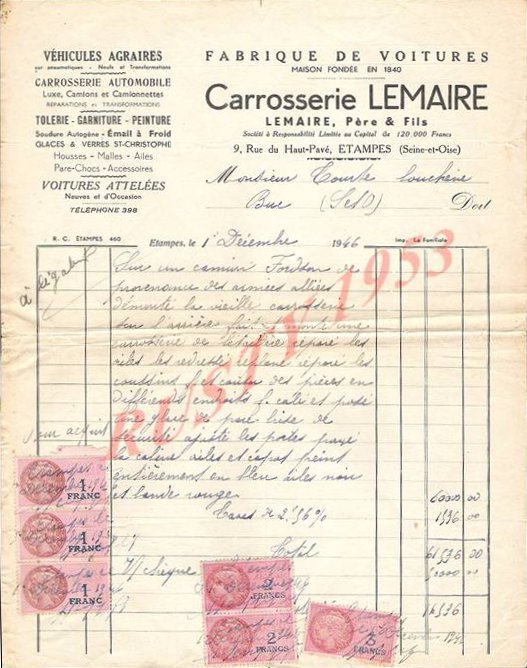 VÉHICULES AGRAIRES
sur pneumatiques - Neufs et Transformations
CARROSSERIE AUTOMOBILE
Luxe, Camions et Camionnettes
RÉPARATIONS et TRANSFORMATIONS
TOLERIE - GARNITURE - PEINTURE
Soudure Autogène - Émail à Froid
GLACES & VERRES ST-CHRISTOPHE
Housses - Malles - Ailes
Pare-Chocs - Accessoires
VOITURES ATTELÉES
Neuves et d'Occasion
TÉLÉPHONE 398
FABRIQUE DE VOITURES
MAISON FONDÉE EN 1840
Carrosserie LEMAIRE
LEMAIRE, Père & Fils
Société à Responsabilité Limitée au Capital de 120.000 Francs
9, Rue du Haut-Pavé, ETAMPES (Seine-et-Oise)
Monsieur
Buc (S&O) Doit
R. C. ÉTAMPES 460
Etampes, le 1 Décembre 1946
Imp. La Familiale
Sur un camion Fordson de
provenance des armées alliées
démonté la vieille carrosserie
fait et monté une
carrosserie de réparé les
ailes les redressé réparé les
coussins et des pièces en
différents endroits et posé
une glace de pare brise de
sécurité ajusté les portes
la cabine ailes et capot peint
entièrement en bleu ailes noir
et bande rouge 60000 00
Taxes 2.56% 1536 00
Total 61536 00
50000 00
11536
Pour acquit
1 FRANC
1 FRANC
1 FRANC
2 FRANCS
2 FRANCS
5 FRANCS
RUSTY1953